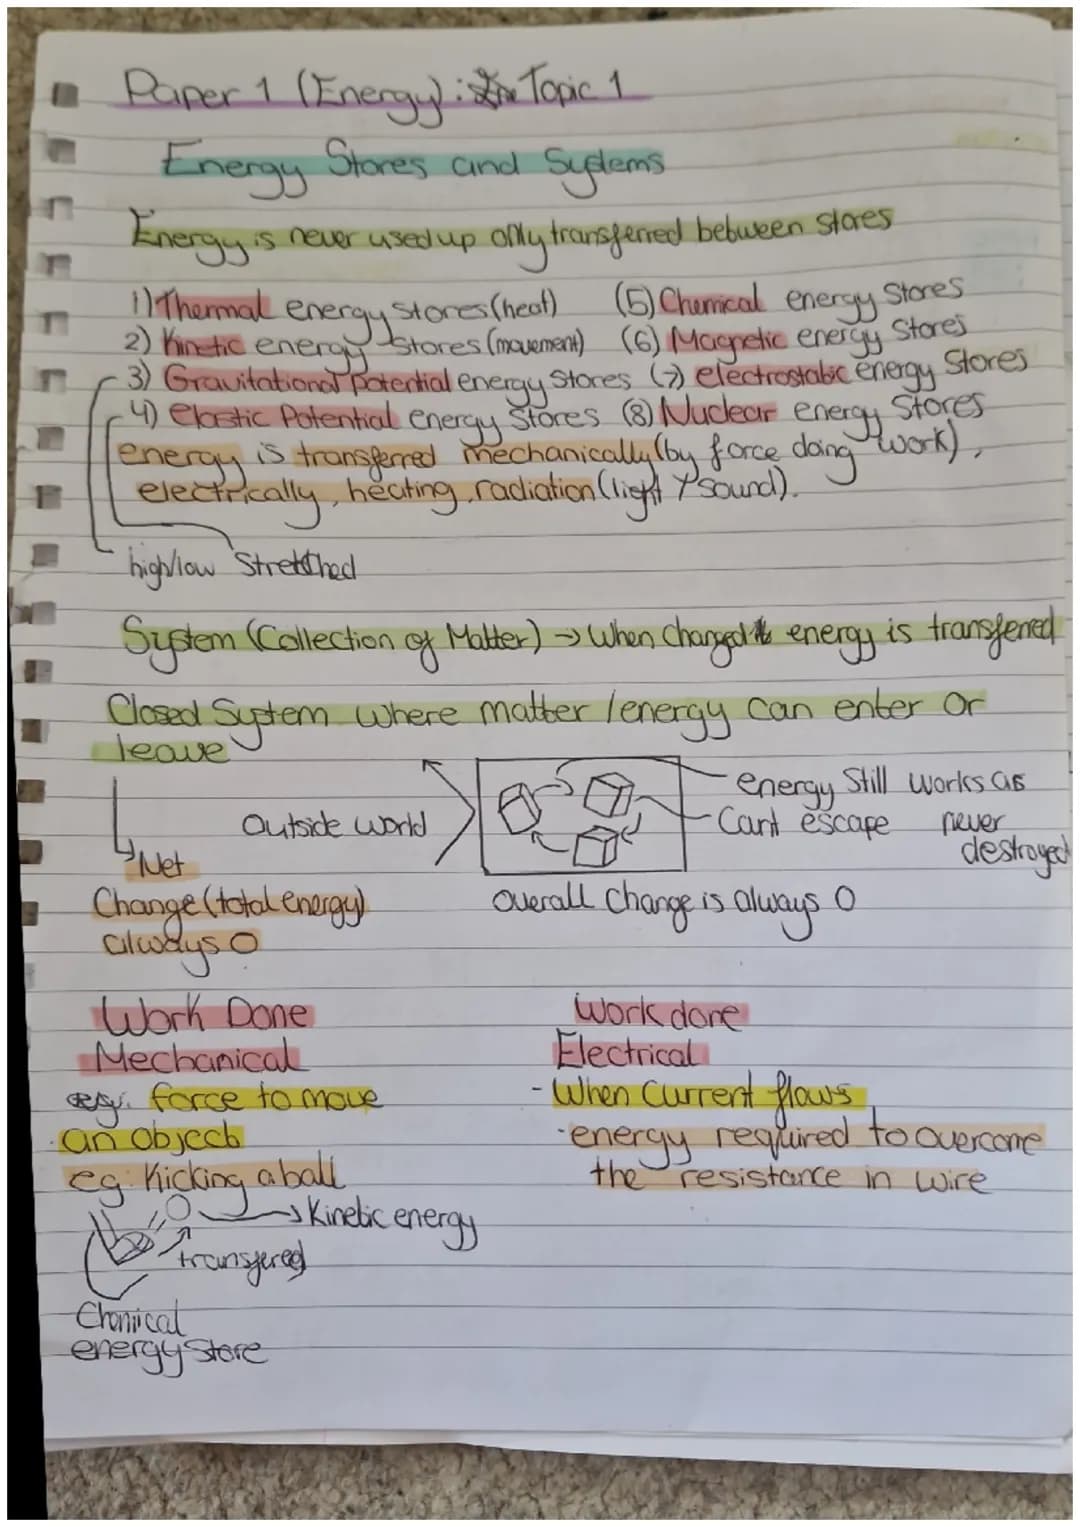 Paper 1 (Energy): Topic 1
Energy Stores and Systems
Energy is never used up only transferred between stores
1) Thermal energy stores (heat) (5) Chemical energy Stores
2) Kinetic energy stores (movement) (6) Magnetic energy Stores
3) Gravitational potential energy Stores (7) electrostatic energy Stores
4) elastic Potential energy Stores (8) Nuclear energy Stores
energy is transferred mechanically (by force doing work),
electrically, heating, radiation (light / sound).
high/low Stretched
System (Collection of Matter) → When changed energy is transferred
Closed System where matter / energy can enter or
leave
energy Still works as
Outside world Cant escape never
destroyed
Net
Change (total energy) Overall Change is always 0
always 0
Work Done Work done
Mechanical Electrical
eg. force to move - When Current flows
an object - energy required to overcome
eg. Kicking a ball the resistance in wire
→ Kinetic energy
transfered
Chemical
energy Store